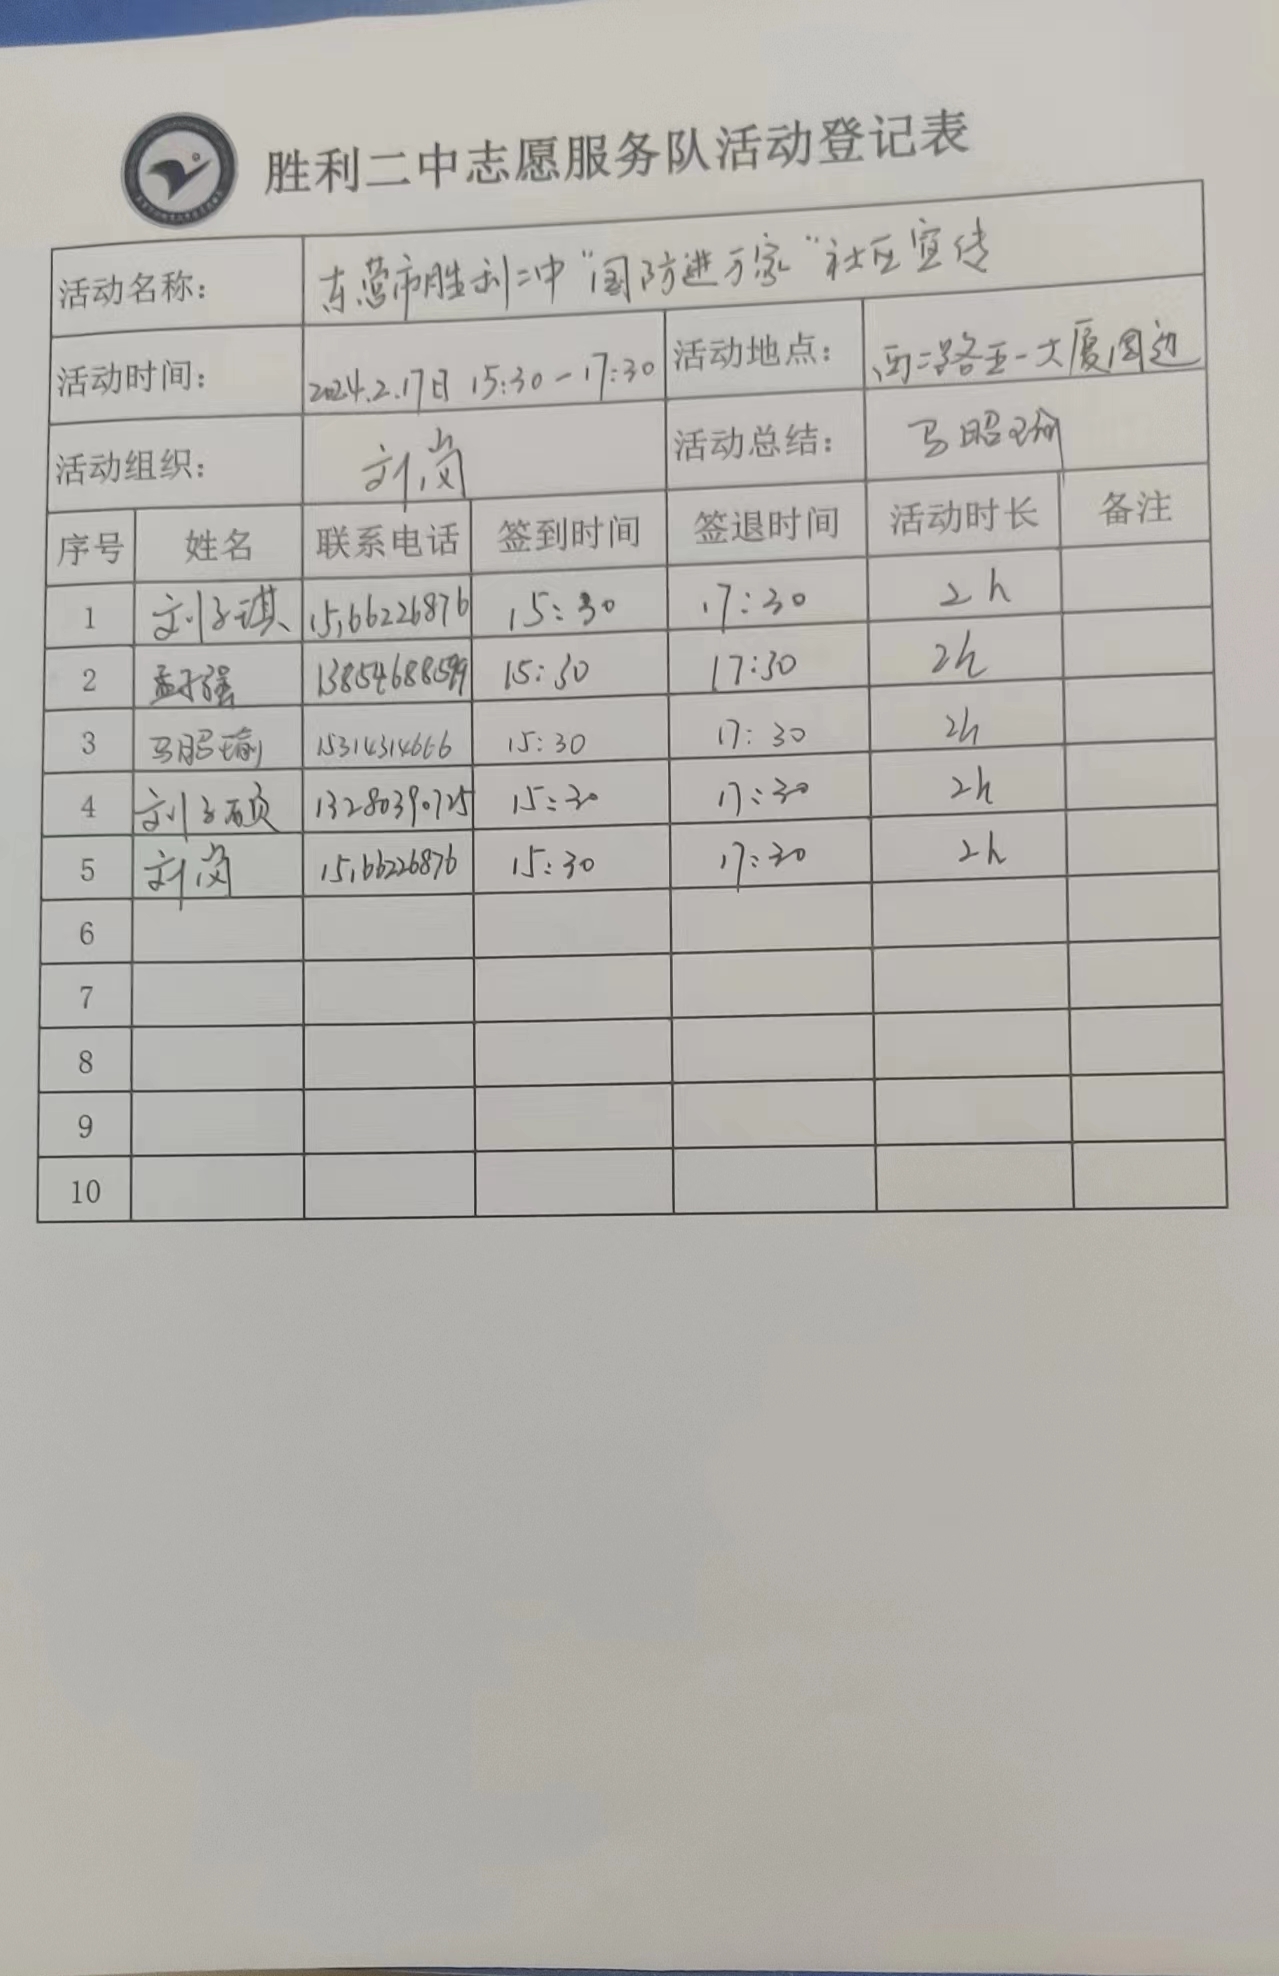 胜利二中志愿服务队活动登记表
活动名称： 东营市胜利二中“国防进万家”社区宣传
活动时间： 2024.2.17日 15:30-17:30 活动地点： 西二路五一大厦周边
活动组织： 刘岗 活动总结： 马昭瑜
序号 姓名 联系电话 签到时间 签退时间 活动时长 备注
1 刘子琪 15166226876 15:30 17:30 2h
2 孟子强 13854688599 15:30 17:30 2h
3 马昭瑜 15314314666 15:30 17:30 2h
4 刘子硕 13280390725 15:30 17:30 2h
5 刘岗 15166226876 15:30 17:30 2h
6
7
8
9
10